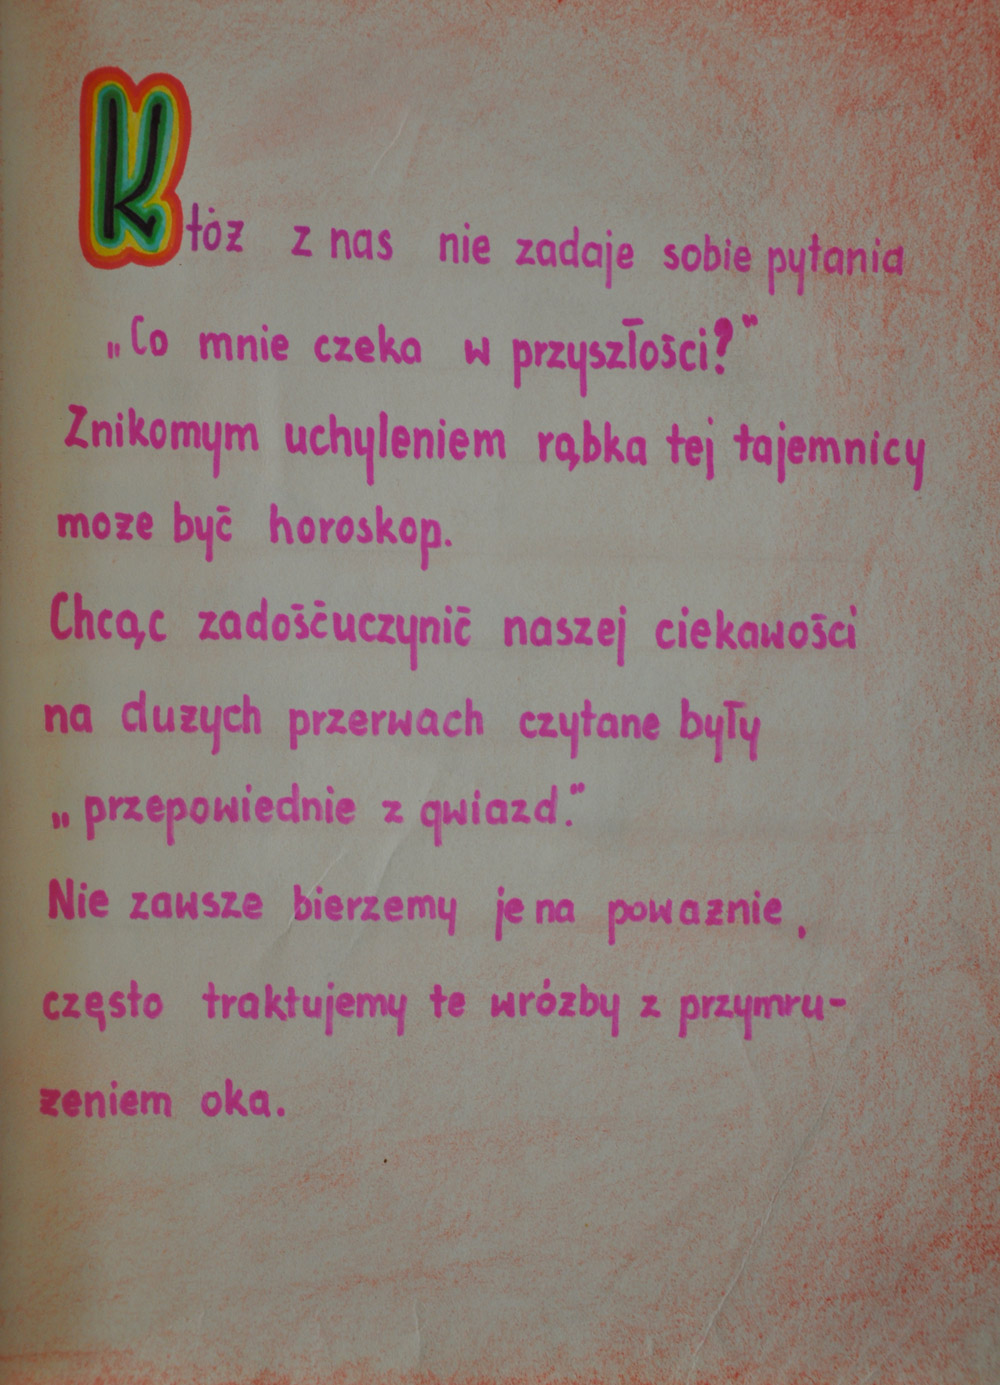 Któż z nas nie zadaje sobie pytania
„Co mnie czeka w przyszłości?"
Znikomym uchyleniem rąbka tej tajemnicy
może być horoskop.
Chcąc zadośćuczynić naszej ciekawości
na dużych przerwach czytane były
„przepowiednie z gwiazd."
Nie zawsze bierzemy je na poważnie,
często traktujemy te wróżby z przymru-
żeniem oka.